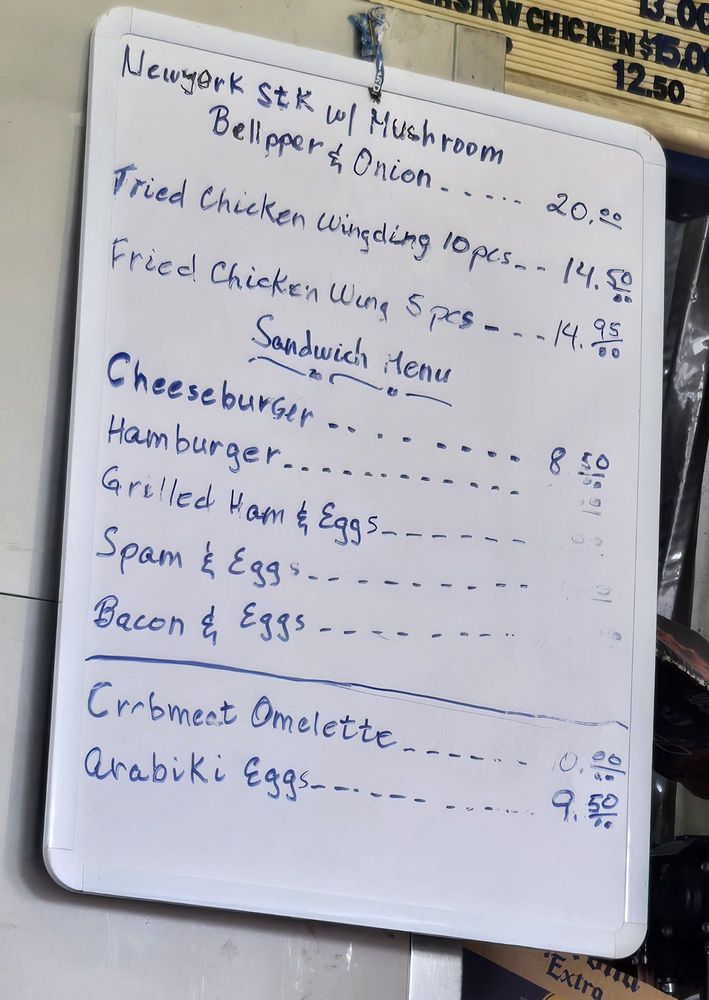 13.00
CHICKEN $15.00
12.50
Newyork Stk w/ Mushroom
Bellpper & Onion ..... 20.00
Fried Chicken Wingding 10 pcs -- 14.50
Fried Chicken Wing 5 pcs --- 14.95
Sandwich Menu
Cheeseburger ........ 8 50
Hamburger ............
Grilled Ham & Eggs -------
Spam & Eggs .........
Bacon & Eggs --------
Crrbmeat Omelette ------- 10.00
Arabiki Eggs ---------- 9.50
Extra